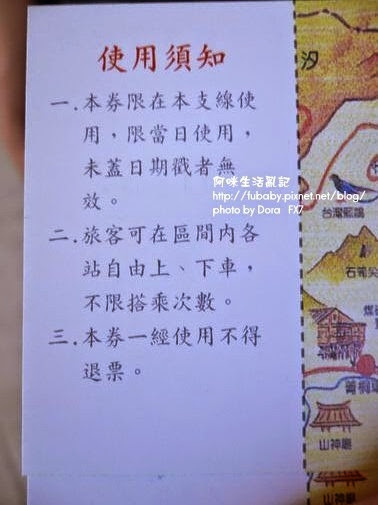 使用須知
一.本券限在本支線使
用，限當日使用，
未蓋日期戳者無
效。
二.旅客可在區間內各
站自由上、下車，
不限搭乘次數。
三.本券一經使用不得
退票。
阿咪生活亂記
http://fubaby.pixnet.net/blog/
photo by Dora FX7
汐
台灣藍鵲
石筍尖
菁桐
山神廟
山神廟